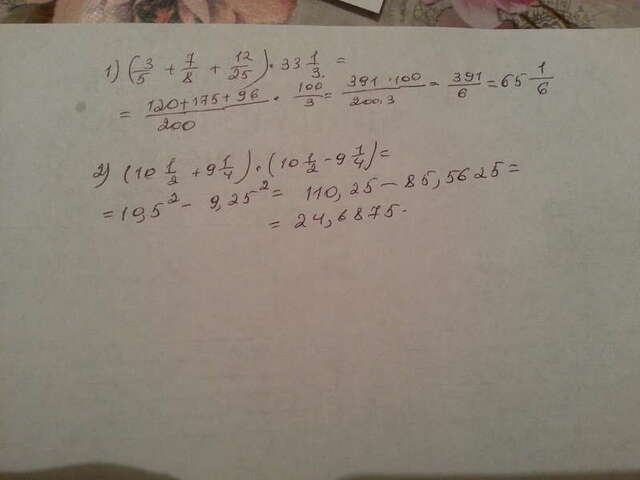 1) (3/5 + 7/8 + 12/25) · 33 1/3 =
= 120+175+96/200 · 100/3 = 391·100/200·3 = 391/6 = 65 1/6
2) (10 1/2 + 9 1/4) · (10 1/2 - 9 1/4) =
= 10,5² - 9,25² = 110,25 - 85,5625 =
= 24,6875.